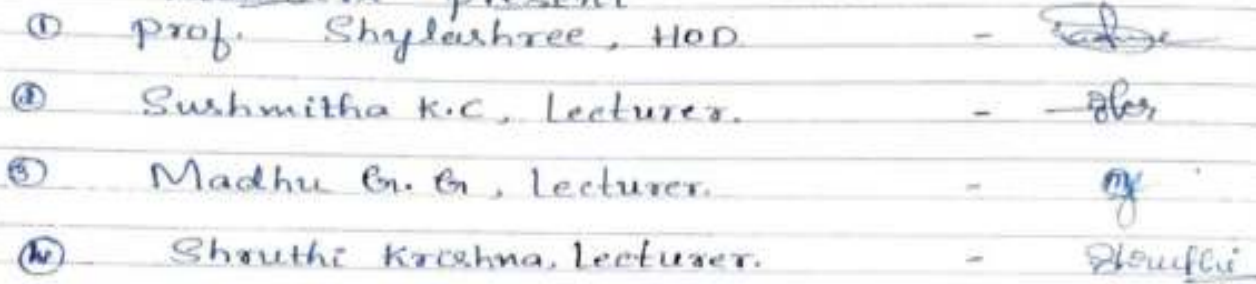 present
① Prof. Shylashree, HOD -
② Sushmitha K.C, Lecturer. -
③ Madhu G. G, Lecturer. -
④ Shruthi Krishna, Lecturer. -